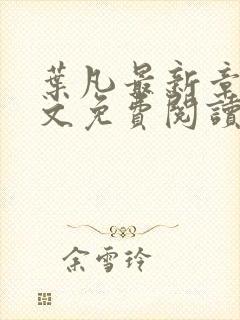 葉凡最新章
文免費閱讀
余雪玲